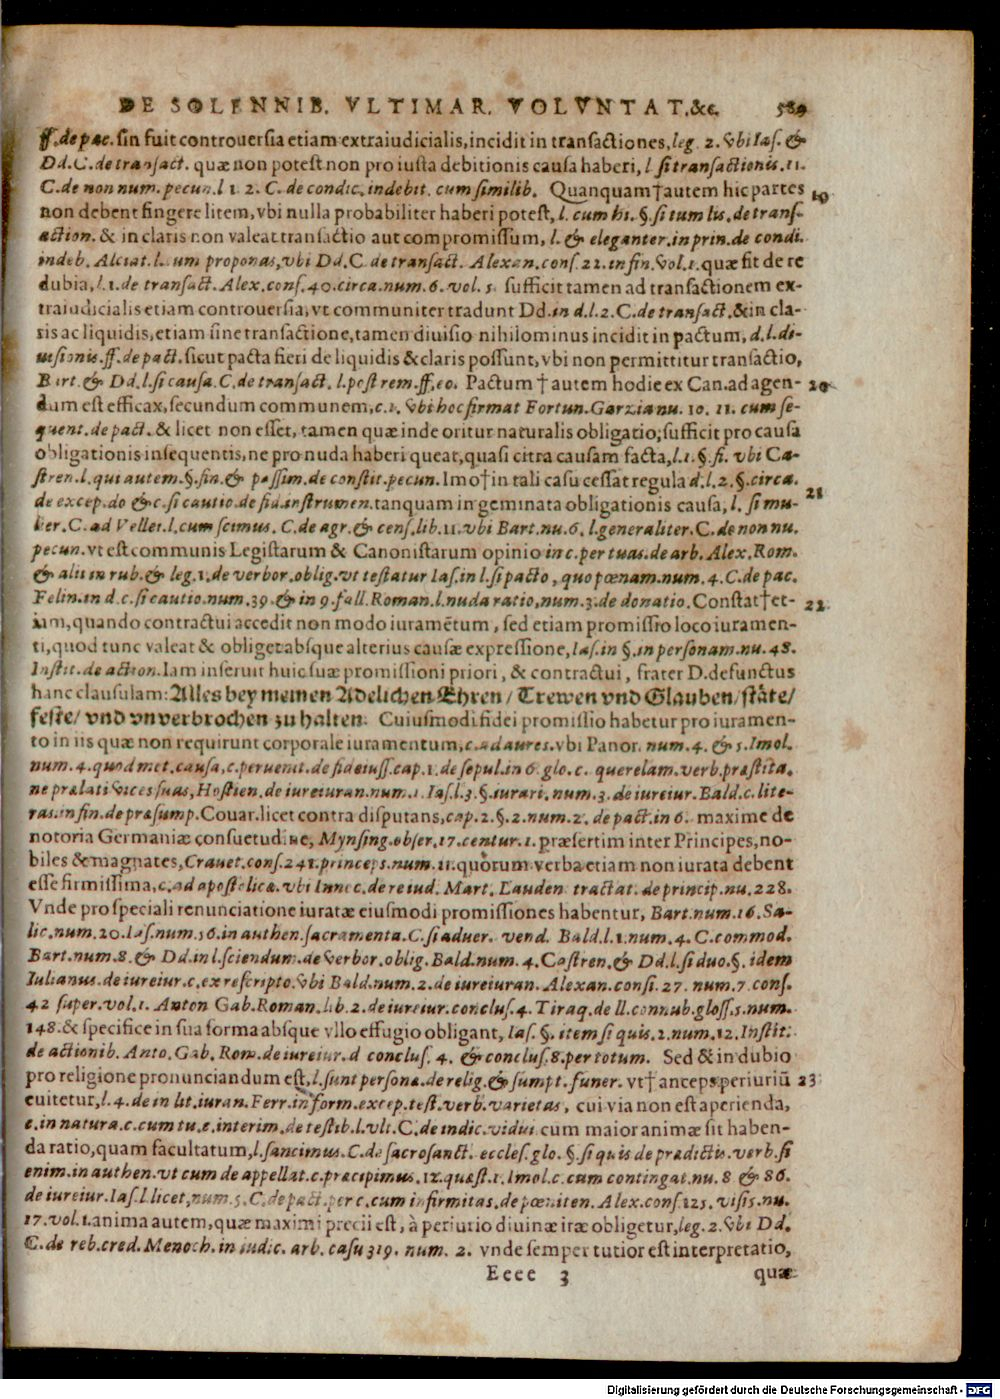 DE SOLENNIB. VLTIMAR. VOLVNTAT.&c. 589
ff. de pac. sin fuit controuersia etiam extraiudicialis, incidit in transactiones, leg. 2. vbi Ias. &
Dd. C. de transact. quæ non potest non pro iusta debitionis causa haberi, l. si transactionis. 11.
C. de non num. pecun. l 1. 2. C. de condic. indebit. cum similib. Quanquam † autem hic partes 19
non debent fingere litem, vbi nulla probabiliter haberi potest, l. cum hi. §. si tum lis. de transf-
action. & in claris non valeat transactio aut compromissum, l. & eleganter. in prin. de condi.
indeb. Alciat. l. cum proponas, vbi Dd. C. de transact. Alexan. cons. 22. in fin. Vol. 1. quæ fit de re
dubia, l. 1. de transact. Alex. cons. 40. circa. num. 6. vol. 5 sufficit tamen ad transactionem ex-
traiudicialis etiam controuersia, vt communiter tradunt Dd. in d. l. 2. C. de transact. & in cla-
ris ac liquidis, etiam sine transactione, tamen diuisio nihilominus incidit in pactum, d. l. di-
uisionis. ff. de pact. sicut pacta fieri de liquidis & claris possunt, vbi non permittitur transactio,
Bart. & Dd. l. si causa. C. de transact. l. post rem. ff. eo. Pactum † autem hodie ex Can. ad agen- 20
dum est efficax, secundum communem, c. 1. vbi hoc firmat Fortun. Garzia nu. 10. 11. cum se-
quent. de pact. & licet non esset, tamen quæ inde oritur naturalis obligatio, sufficit pro causa
obligationis insequentis, ne pro nuda haberi queat, quasi citra causam facta, l. 1. §. fi. vbi Ca-
stren. l. qui autem. §. fin. & passim. de constit. pecun. Imo † in tali casu cessat regula d. l. 2. §. circa. 21
de excep. do & c. si cautio de fid. instrumen. tanquam in geminata obligationis causa, l. si mu-
lier. C. ad Vellei. l. cum scimus. C. de agr. & cens. lib. 11. vbi Bart. nu. 6. l. generaliter. C. de non nu.
pecun. vt est communis Legistarum & Canonistarum opinio in c. per tuas. de arb. Alex. Rom.
& alii in rub. & leg. 1. de verbor. oblig. vt testatur Ias. in l. si pacto, quo pœnam. num. 4. C. de pac.
Felin. in d. c. si cautio. num. 39. & in 9. fall. Roman. l. nuda ratio, num. 3. de donatio. Constat † et- 22
iam, quando contractui accedit non modo iuramētum, sed etiam promissio loco iuramen-
ti, quod tunc valeat & obliget absque alterius causæ expressione, Ias. in §. in personam. nu. 48.
Instit. de action. Iam inseruit huic suæ promissioni priori, & contractui, frater D. defunctus
hanc clausulam: Alles bey meinen Adelichen Ehren / Trewen vnd Glauben / stäte /
feste / vnd vnverbrochen zu halten. Cuiusmodi fidei promissio habetur pro iuramen-
to in iis quæ non requirunt corporale iuramentum, c. ad aures. vbi Panor. num. 4. & 5. Imol.
num. 4. quod met. causa, c. peruenit. de fideiuss. cap. 1. de sepul. in 6. glo. c. querelam. verb. præstita.
ne prælati vices suas, Hostien. de iureiuran. num. 1. Ias. l. 3. §. iurari. num. 3. de iureiur. Bald. c. lite-
ras. in fin. de præsump. Couar. licet contra disputans, cap. 2. §. 2. num. 2. de pact. in 6. maxime de
notoria Germaniæ consuetudine, Mynsing. obser. 17. centur. 1. præsertim inter Principes, no-
biles & magnates, Crauet. cons. 241. princeps. num. 11. quorum verba etiam non iurata debent
esse firmissima, c. ad apostolicæ. vbi Innoc. de re iud. Mart. Lauden tractat. de princip. nu. 228.
Vnde pro speciali renunciatione iuratæ eiusmodi promissiones habentur, Bart. num. 16. Sa-
lic. num. 20. Ias. num. 56. in authen. sacramenta. C. si aduer. vend. Bald. l. 1. num. 4. C. commod.
Bart. num. 8. & Dd. in l. sciendum. de verbor. oblig. Bald. num. 4. Castren. & Dd. l. si duo. §. idem
Iulianus. de iureiur. c. ex rescripto. vbi Bald. num. 2. de iureiuran. Alexan. consi. 27. num. 7. cons.
42 super. vol. 1. Anton Gab. Roman. lib. 2. de iureiur. conclus. 4. Tiraq. de ll. connub. gloss. 5. num.
148. & specifice in sua forma absque vllo effugio obligant, Ias. §. item si quis. 2. num. 12. Instit.
de actionib. Anto. Gab. Rom. de iureiur. d conclus. 4. & conclus. 8. per totum. Sed & in dubio
pro religione pronunciandum est, l. sunt personæ. de relig. & sumpt. funer. vt † anceps periuriū 23
euitetur, l. 4. de in lit. iuran. Ferr. in form. excep. test. verb. varietas, cui via non est aperienda,
c. in natura. c. cum tu. c. interim. de testib. l. vlt. C. de indic. vidui cum maior animæ sit haben-
da ratio, quam facultatum, l. sancimus. C. de sacrosanct. eccles. glo. §. si quis de prædictis. verb. si
enim. in authen. vt cum de appellat. c. præcipimus. 12. quæst. 1. Imol. c. cum contingat. nu. 8 & 86.
de iureiur. Ias. l. licet, num. 5. C. de pact. per c. cum infirmitas. de pœniten. Alex. cons. 125. visis. nu.
17. vol. 1. anima autem, quæ maximi precii est, à periurio diuinæ iræ obligetur, leg. 2. vbi Dd.
C. de reb. cred. Menoch. in iudic. arb. casu 319. num. 2. vnde semper tutior est interpretatio,
Eeee 3 quæ
Digitalisierung gefördert durch die Deutsche Forschungsgemeinschaft - DFG